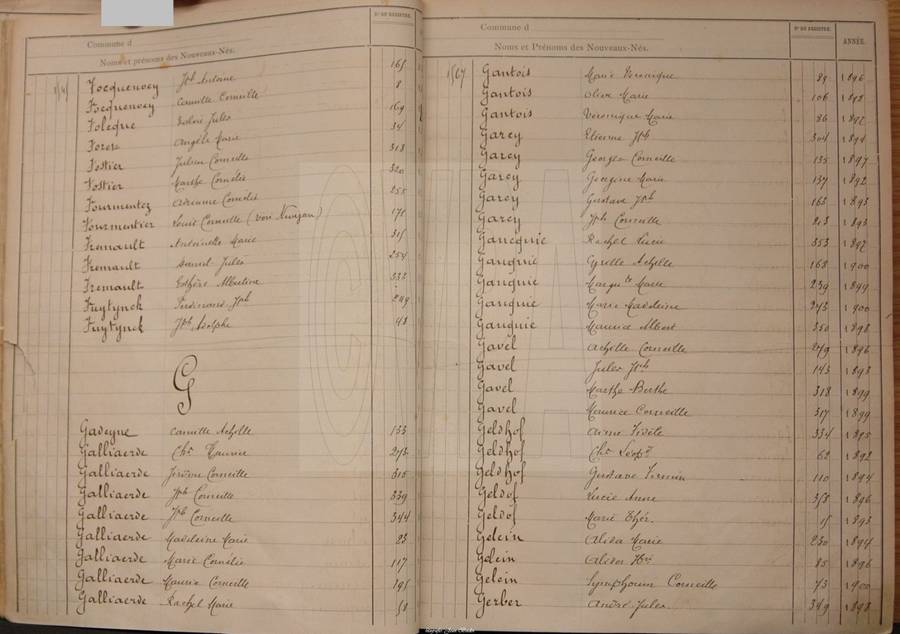 Commune d
N° DU REGISTRE.
Noms et prénoms des Nouveaux-Nés.
Focquenoey Jph Antoine 165
Focquenoey Camille Corneille 8
Folèque Jules 169
Angèle Marie 34
Fostier Julien Corneille 313
Fostier Marthe Cornélie 320
Fourmentez Adrienne Cornélie 255
Fourmentier Louis Corneille (voir 171
Fremault Antoinette Marie 315
Fremault Daniel Jules 254
Fremault Albertine 332
Fuytynck Ferdinand Jph 249
Fuytynck Jph Adolphe 48
G
Gadeyne Camille Achille 133
Galliaerde Chs Maurice 273
Galliaerde Jérôme Corneille 315
Galliaerde Jph Corneille 339
Galliaerde Jph Corneille 344
Galliaerde Madeleine Marie 23
Galliaerde Marie Cornélie 117
Galliaerde Maurice Corneille 195
Galliaerde Rachel Marie 58
Commune d
N° DU REGISTRE.
ANNÉE.
Noms et Prénoms des Nouveaux-Nés.
Gantois Marie Véronique 89 1896
Gantois Olive Marie 106 1892
Gantois Véronique Marie 86 1892
Garey Etienne Jph 304 1894
Garey Georges Corneille 135 1897
Garey Georgine Marie 137 1892
Garey Gustave Jph 165 1893
Garey Jph Corneille 213 1893
Gancquie Rachel Lucie 353 1892
Gauquie Cyrille Achille 168 1900
Gauquie Margu.te Marie 239 1899
Gauquie Marie Madeleine 273 1900
Gauquie Maurice Albert 350 1898
Gavel Achille Corneille 279 1896
Gavel Jules Jph 143 1893
Gavel Marthe Berthe 318 1899
Gavel Maurice Corneille 317 1899
Geldhof Aimé Fidèle 334 1895
Geldhof Chs Léop. 62 1892
Geldhof Gustave Firmin 110 1894
Geldof Lucie Anne 358 1896
Geldof Marie Thér. 15 1893
Gelein Alida Marie 230 1894
Gelein Alidor Hri 85 1896
Gelein Symphorien Corneille 73 1900
Gerber André Jules 349 1898